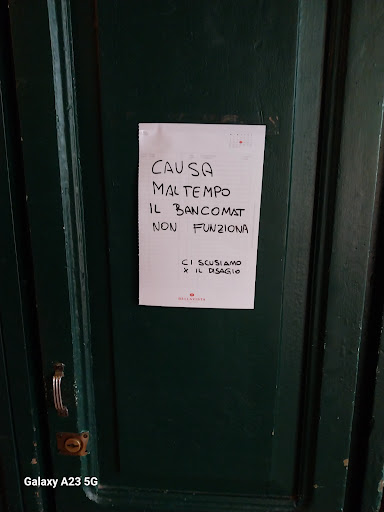 CAUSA
MALTEMPO
IL BANCOMAT
NON FUNZIONA
CI SCUSIAMO
X IL DISAGIO
Galaxy A23 5G